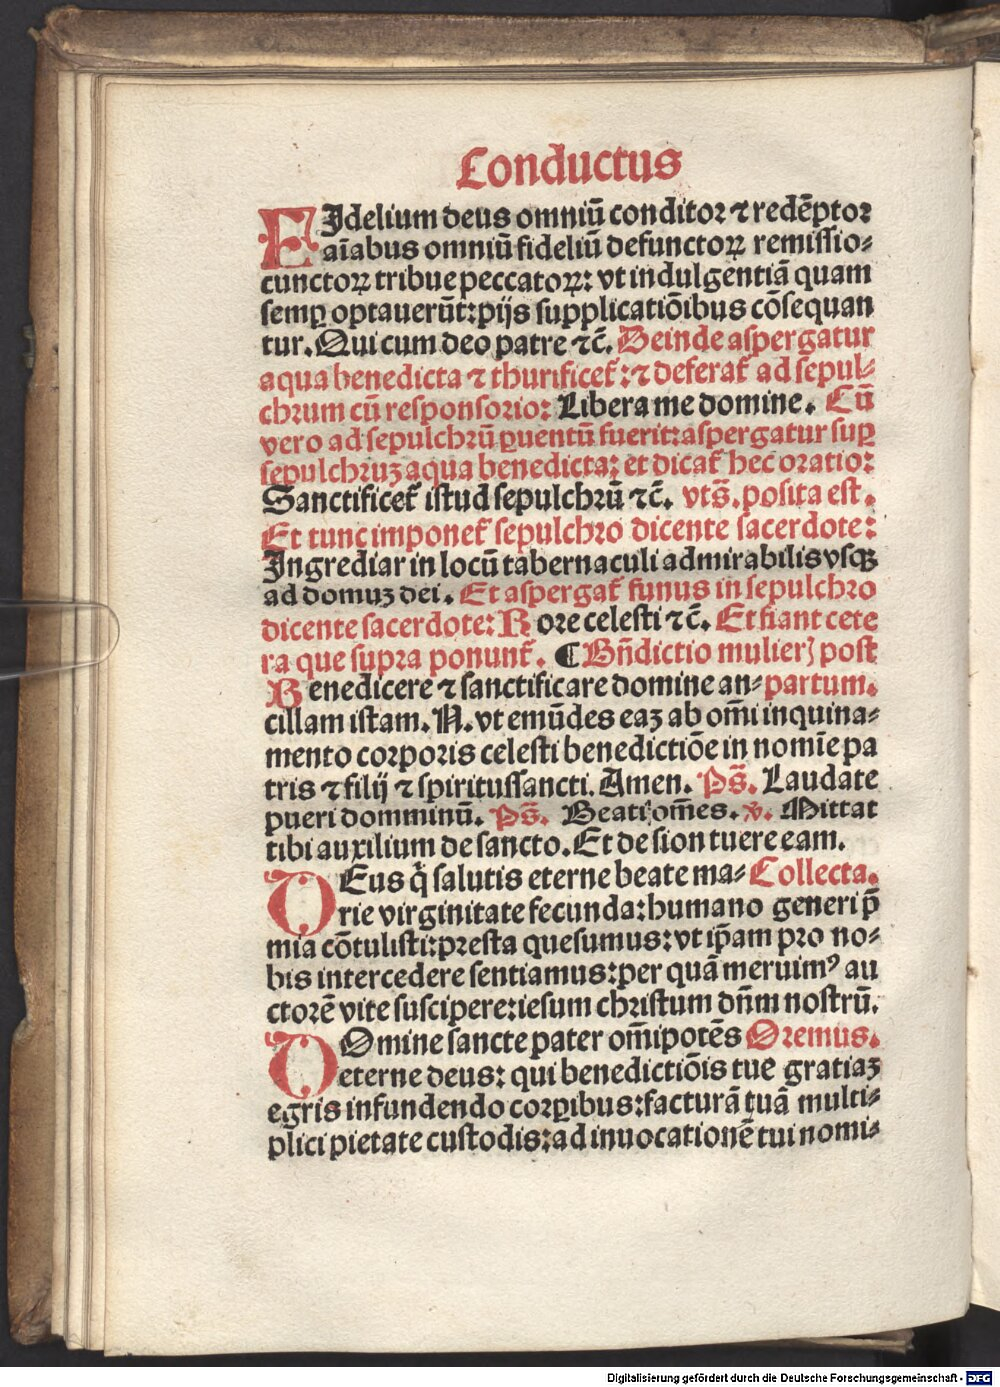 Conductus
FIdelium deus omniũ conditoꝛ ⁊ redẽptoꝛ
aĩabus omniũ fideliũ defunctoꝝ remiſſio-
cunctoꝝ tribue peccatoꝝ: vt indulgentiã quam
ſemꝑ optauerũt: pijs ſupplicatiõibus cõſequan
tur. Qui cum deo patre ⁊c̃. Deinde aſpergatur
aqua benedicta ⁊ thurificet᷑: ⁊ deferat᷑ ad ſepul-
chrum cũ reſponſorio: Libera me domine. Cũ
vero ad ſepulchꝛũ ꝑuentũ fuerit: aſpergatur ſuꝑ
ſepulchruꝫ aqua benedicta: et dicat᷑ hec oꝛatio:
Sanctificet᷑ iſtud ſepulchꝛũ ⁊c̃. vts̃. poſita eſt.
Et tunc imponet᷑ ſepulchꝛo dicente ſacerdote:
Ingrediar in locũ tabernaculi admirabilis vſqꝫ
ad domuꝫ dei. Et aſpergat᷑ funus in ſepulchꝛo
dicente ſacerdote: Roꝛe celeſti ⁊c̃. Et fiant cete
ra que ſupꝛa ponunt᷑. ¶ Bñdictio mulieꝝ poſt
Benedicere ⁊ ſanctificare domine an- partum.
cillam iſtam. N. vt emũdes eaꝫ ab om̃i inquina-
mento coꝛpoꝛis celeſti benedictiõe in nomĩe pa
tris ⁊ filij ⁊ ſpirituſſancti. Amen. Ps̃. Laudate
pueri domminũ. Ps̃. Beati om̃es. v̾. Mittat
tibi auxilium de ſancto. Et de ſion tuere eam.
DEus q̇ ſalutis eterne beate ma- Collecta.
rie virginitate fecunda: humano generi p̃
mia cõtuliſti: pꝛeſta queſumus: vt ip̃am pꝛo no-
bis intercedere ſentiamus: per quã meruimꝰ au
ctoꝛẽ vite ſuſcipere: ieſum chꝛiſtum dñm noſtrũ.
DOmine ſancte pater om̃ipotẽs Oꝛemus.
eterne deus: qui benedictiõis tue gratiaꝫ
egris infundendo coꝛꝑibus: facturã tuã multi-
plici pietate cuſtodis: ad inuocationẽ tui nomi-
Digitalisierung gefördert durch die Deutsche Forschungsgemeinschaft - DFG